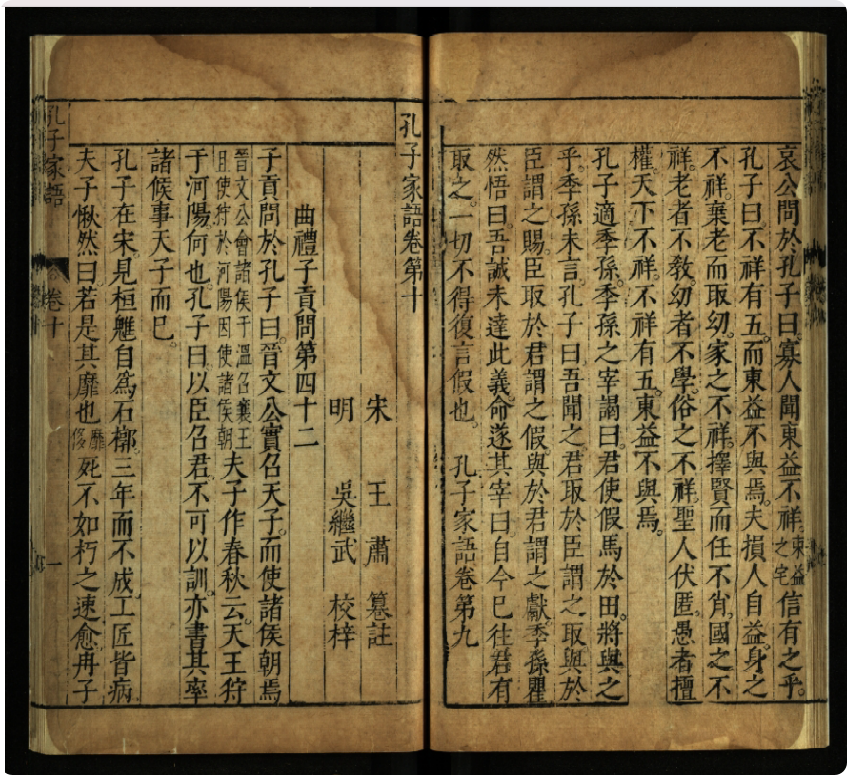 哀公問於孔子曰。寡人聞東益不祥。東益之宅信有之乎。
孔子曰。不祥有五。而東益不與焉。夫損人自益。身之
不祥。棄老而取幼。家之不祥。擇賢而任不肖。國之不
祥。老者不敎。幼者不學。俗之不祥。聖人伏匿。愚者擅
權。天下不祥。不祥有五。東益不與焉。
孔子適季孫。季孫之宰謁曰。君使假馬於田。將與之
乎。季孫未言。孔子曰。吾聞之。君取於臣。謂之取。與於
臣。謂之賜。臣取於君。謂之假。與於君。謂之獻。季孫瞿
然悟曰。吾誠未達此義。命遂其宰曰。自今已往。君有
取之。一切不得復言假也。 孔子家語卷第九
孔子家語卷第十
宋 王 肅 篹註
明 吳繼武 校梓
曲禮子貢問第四十二
子貢問於孔子曰。晉文公實召天子。而使諸侯朝焉。
晉文公會諸侯于溫召襄王且使狩於河陽因使諸侯朝夫子作春秋云。天王狩
于河陽何也。孔子曰。以臣召君。不可以訓。亦書其率
諸侯事天子而已。
孔子在宋。見桓魋自爲石槨。三年而不成。工匠皆病。
夫子愀然曰。若是其靡也。靡侈死不如朽之速愈。冉子
孔子家語
卷十
一